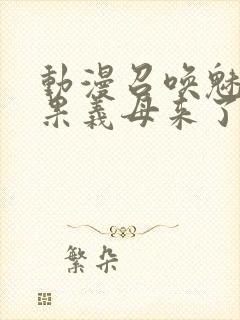 動漫召喚魅
果義母來了
繁朵